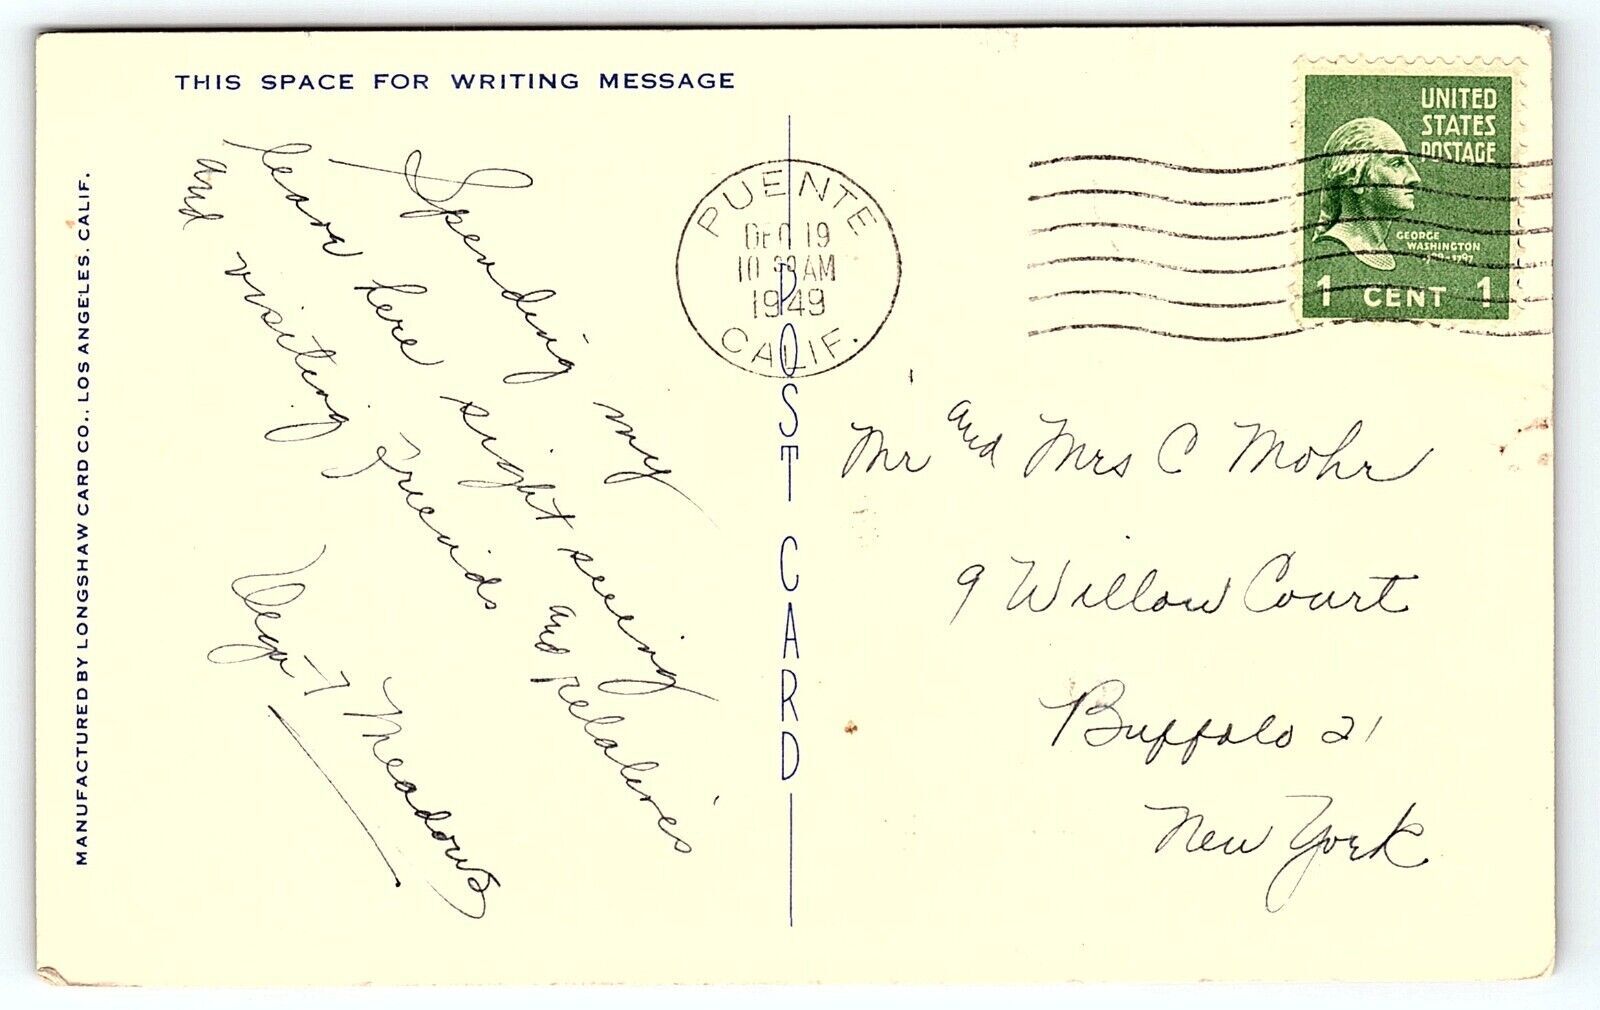 THIS SPACE FOR WRITING MESSAGE
MANUFACTURED BY LONGSHAW CARD CO., LOS ANGELES, CALIF.
Spending my
leave here sight seeing
and visiting friends and relatives
Meadows
PUENTE
DEC 19
10 AM
1949
CALIF.
POST CARD
UNITED
STATES
POSTAGE
GEORGE
WASHINGTON
1 CENT 1
Mr and Mrs C Mohr
9 Willow Court
Buffalo 21
New York